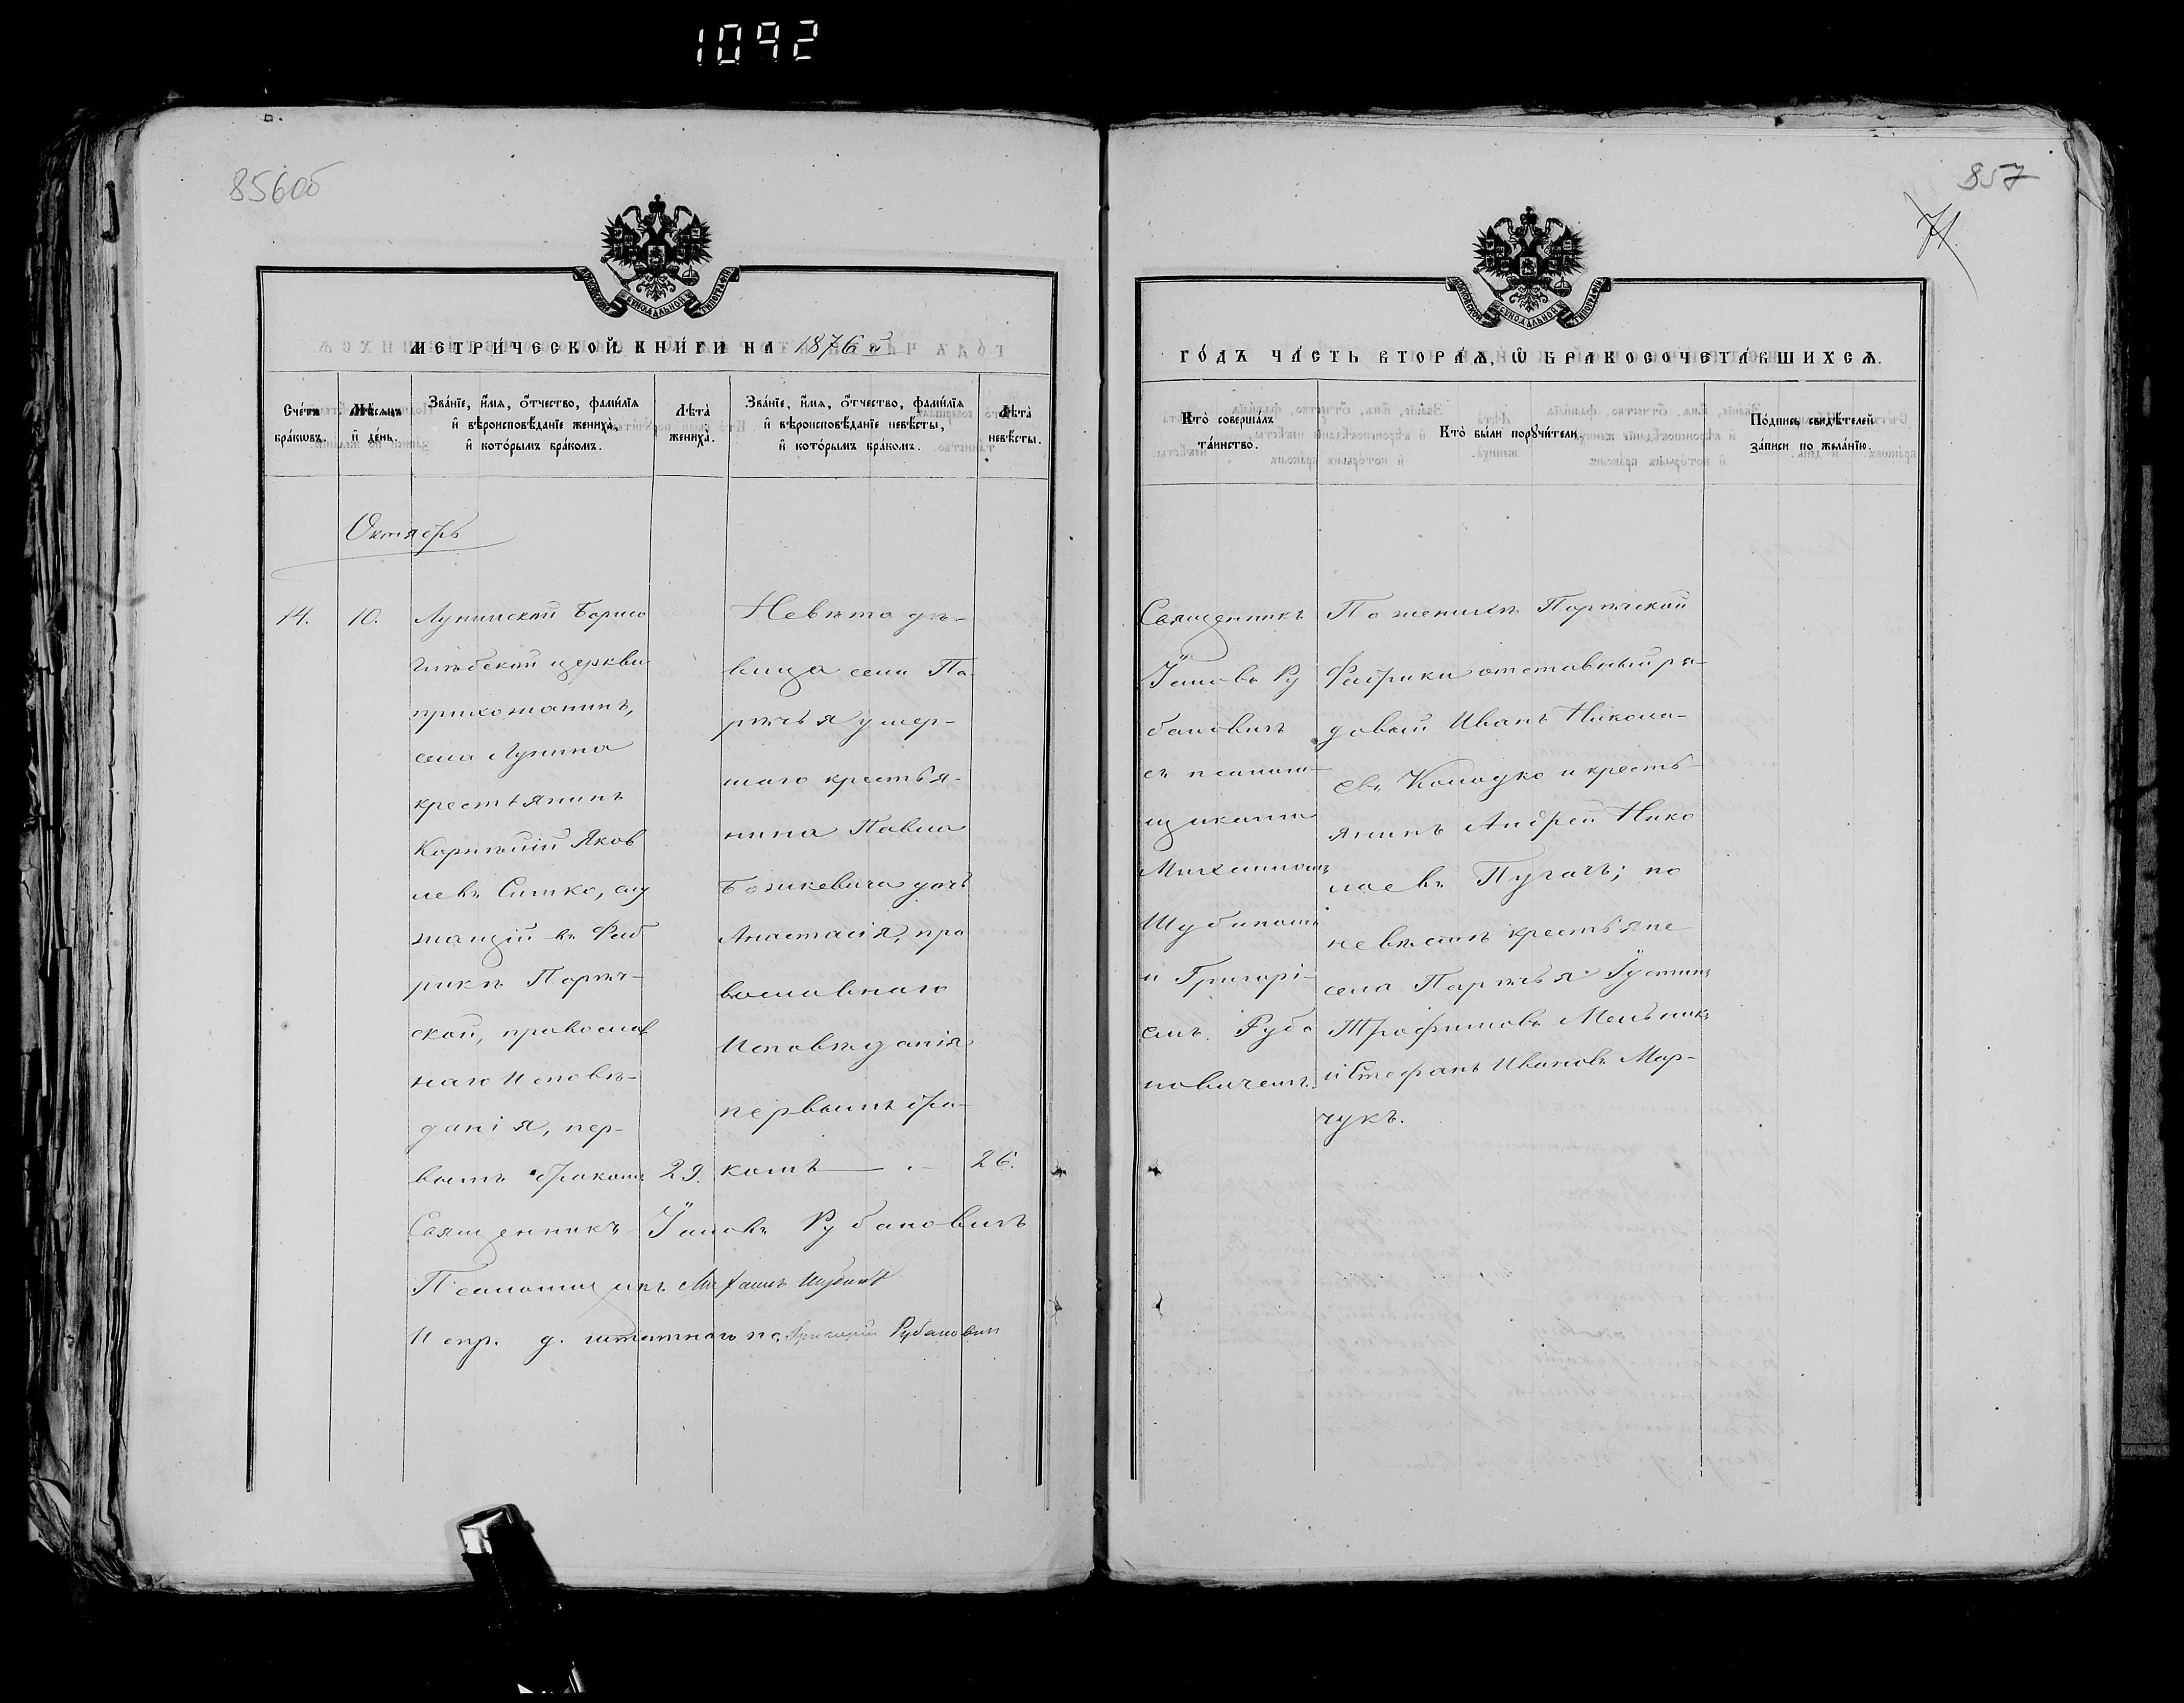 1092
856об
857
71
МЕТРИ́ЧЕСКОЙ КНИ́ГИ НА 1876й
Сче́тъ бра́кωвъ.
Мѣ́сѧцъ и҆ де́нь.
Зва́нїе, и҆́мѧ, ѻ҆́тчество, фами́лїѧ и҆ вѣроисповѣ́данїе жениха̀, и҆ кото́рымъ бра́комъ.
Лѣта̀ жениха̀.
Зва́нїе, и҆́мѧ, ѻ҆́тчество, фами́лїѧ и҆ вѣроисповѣ́данїе невѣ́сты, и҆ кото́рымъ бра́комъ.
Лѣта̀ невѣ́сты.
Октябрь
14.
10.
Лунинской Борисо
глѣбской церкви
прихожанинъ,
села Лунина
крестьянинъ
Корнилій Яков
левъ Симко, слу
жащій въ Фаб
рикѣ Порѣч-
ской, православ
наго Исповѣ-
данія, пер-
вымъ бракомъ
29.
Невѣста дѣ-
вица села По-
рѣчья умер-
шаго крестья-
нина Павла
Божкевича дочь
Анастасія, пра
вославнаго
Исповѣданія
первымъ бра-
комъ
26.
Священникъ Іаковъ Рубановичъ
Псаломщикъ Михаилъ Шубинъ
Испр. д. штатнаго пс. Григорій Рубанович
ГО́ДЪ ЧА́СТЬ ВТОРА́Ѧ, Ѽ БРАКОСОЧЕТА́ВШИХСѦ.
Кто̀ соверша́лъ та́инство.
Кто̀ бы́ли порꙋчи́тели.
По́дпись свидѣ́телей за́писи по жела́нїю.
Священникъ
Іаковъ Ру
бановичъ
съ псалом-
щиками
Михаиломъ
Шубинымъ
и Григорі-
емъ Руба
новичемъ.
По женихѣ Порѣчской
Фабрики отставный ря-
довой Иванъ Никола-
евъ Колодко и кресть-
янинъ Андрей Нико
лаевъ Пугачъ; по
невѣстѣ крестьяне
села Порѣчья Іустинъ
Трофимовъ Мельникъ
и Стефанъ Ивановъ Мар-
чукъ.